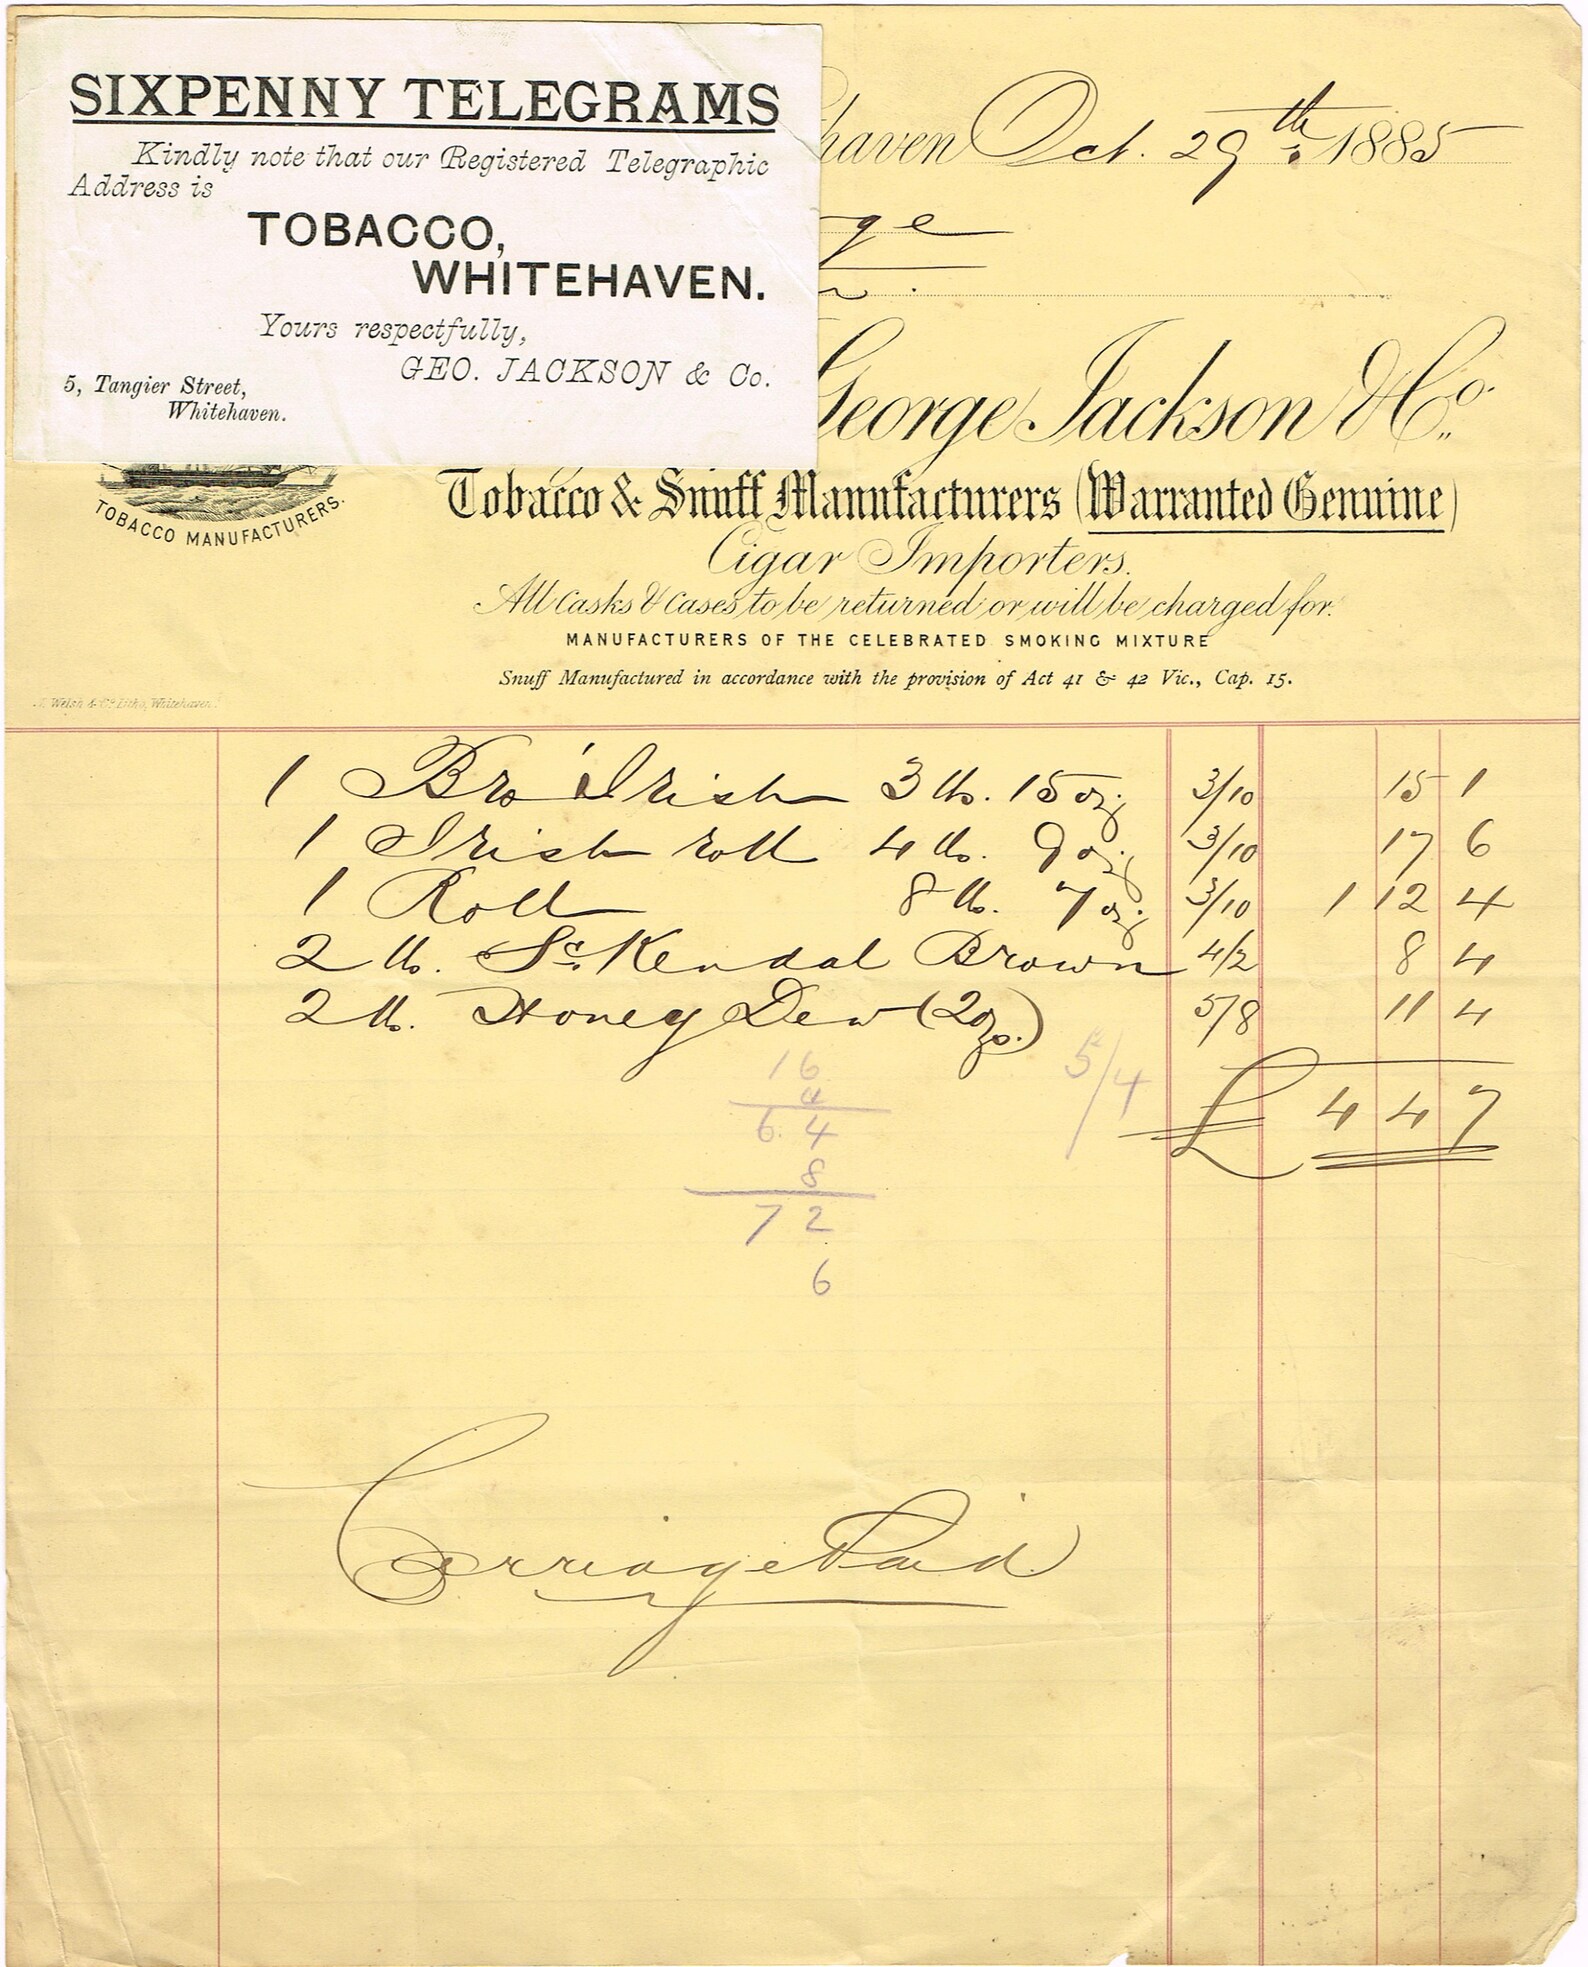 SIXPENNY TELEGRAMS
Kindly note that our Registered Telegraphic
Address is
TOBACCO,
WHITEHAVEN.
Yours respectfully,
GEO. JACKSON & Co.
5, Tangier Street,
Whitehaven.
haven Oct. 29th 1885
ge
George Jackson & Co.
TOBACCO MANUFACTURERS.
Tobacco & Snuff Manufacturers (Warranted Genuine)
Cigar Importers.
All Casks & Cases to be returned or will be charged for.
MANUFACTURERS OF THE CELEBRATED SMOKING MIXTURE
Snuff Manufactured in accordance with the provision of Act 41 & 42 Vic., Cap. 15.
Welsh & Co. Litho, Whitehaven.
1 Bro Irish 3 lb. 15 oz 3/10 15 1
1 Irish roll 4 lb. 9 oz 3/10 17 6
1 Roll 8 lb. 7 oz 3/10 1 12 4
2 lb. Sc. Kendal Brown 4/2 8 4
2 lb. Honey Dew (2ozs.) 5/8 11 4
£ 4 4 7
16
4
6 4
8
7 2
6
5/4
Carriage Paid